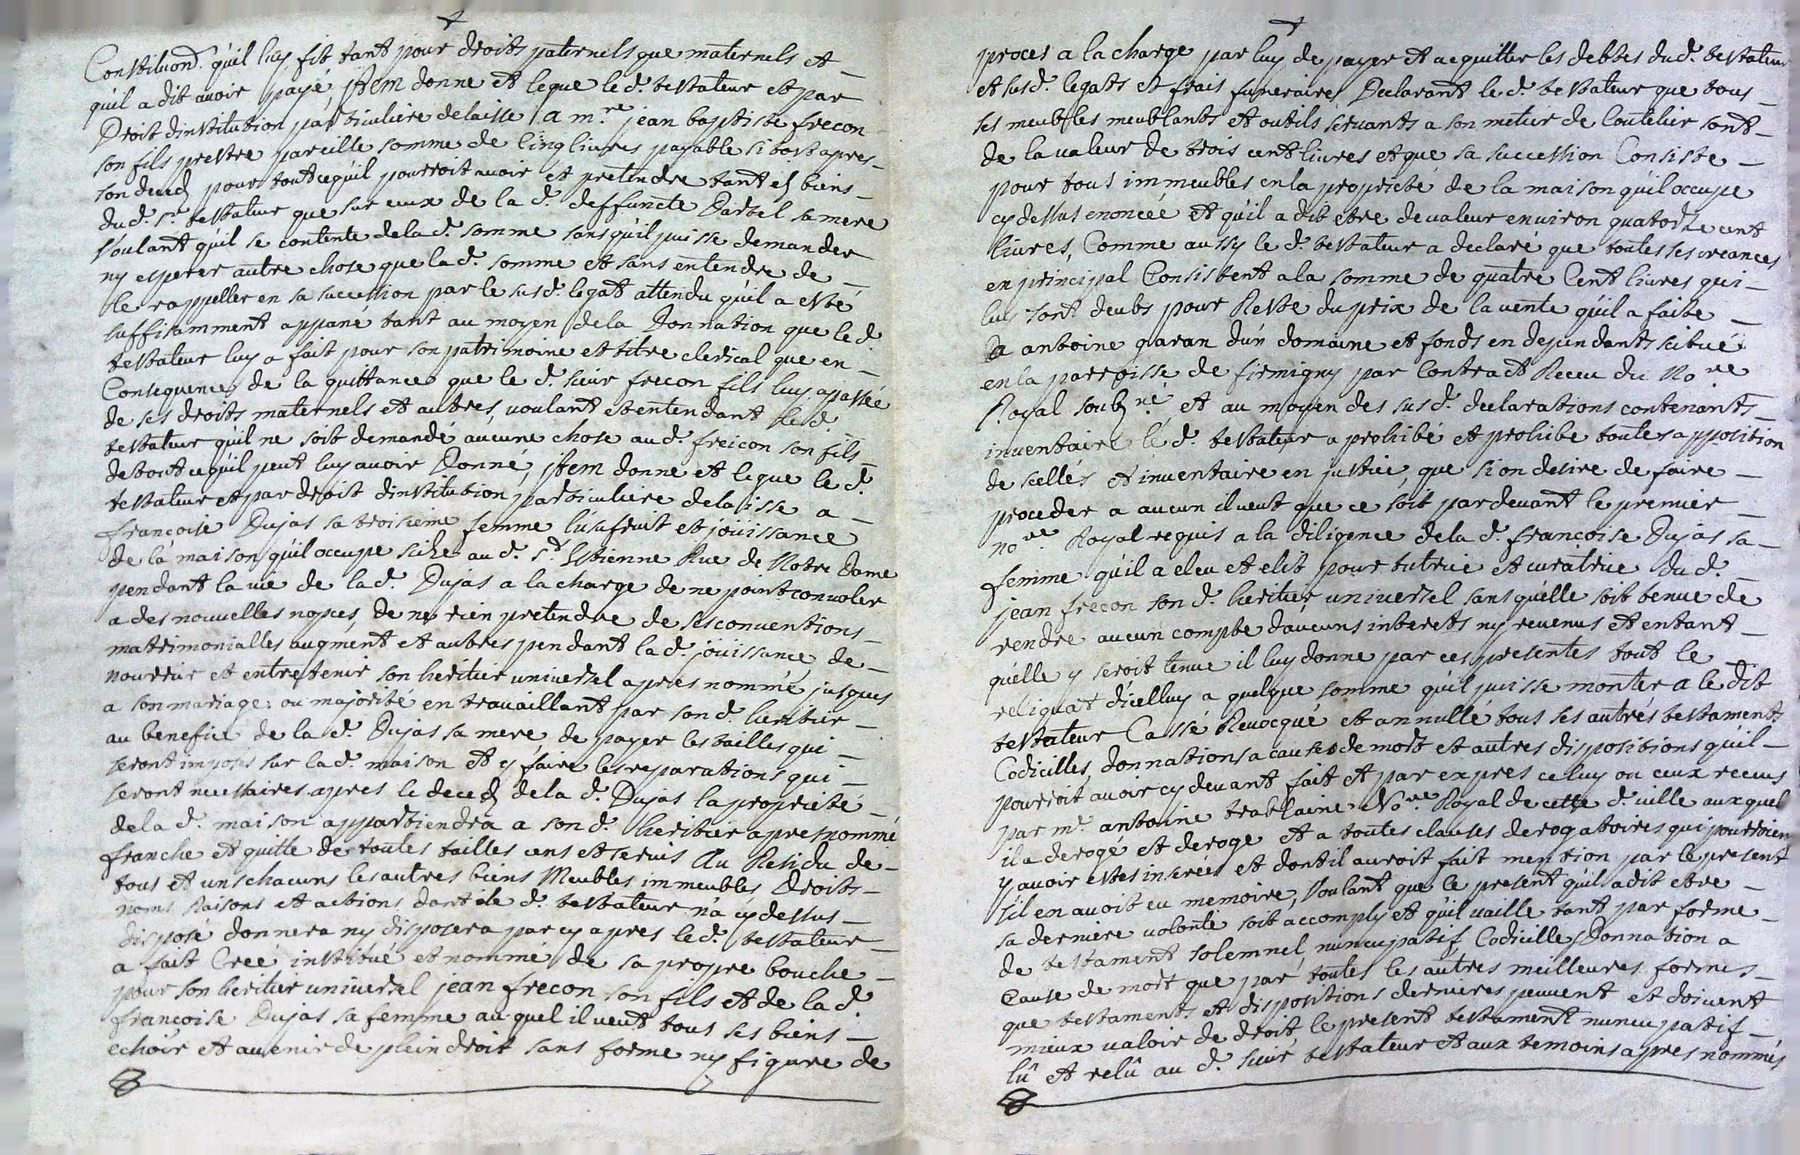 Constituon^. qu'il luy fit tant pour droits paternels que maternels et
qu'il a dit avoir payé, Item donne et legue le d. testateur et par
Droit dinstitution particuliere delaisse a m.^re jean baptiste frecon
son fils prestre pareille somme de Cinq livres payable sitost apres
son deced pour tout ce qu'il pourroit avoir et pretendre tant es biens
du d. s.^r testateur que sur ceux de la d. deffuncte Dartel sa mere
voulant qu'il se contente de la d. somme sans qu'il puisse demander
ny esperer autre chose que la d. somme et sans entendre de
le rappeller en sa succession par le susd. legat attendu qu'il a esté
suffisamment appané tant au moyen de la Donnation que le d.
testateur luy a fait pour son patrimoine et titre clerical que en
Consequence de la quittance que le d. sieur frecon fils luy a passée
de ses droits maternels et autres, voulant et entendant le d.
testateur qu'il ne soit demandé aucune chose au d. freicon son fils
de tout ce qu'il peut luy avoir Donné, Item donne et legue le d.
testateur et par droit dinstitution particuliere delaisse a
francoise Dujas sa troisieme femme lusufruit et jouissance
de la maison qu'il occupe size au d. S.^t Estienne Rue de Notre Dame
pendant la vie de la d. Dujas a la charge de ne point convoler
a des nouvelles nopces, de ne rien pretendre de ses conventions
matrimonialles augment et autres pendant la d. jouissance de
nourrir et entretenir son heritier universel apres nommé jusques
a son mariage ou majorité en travaillant par son d. heritier
au benefice de la d. Dujas sa mere de payer les tailles qui
seront imposés sur la d. maison et y faire les reparations qui
seront necessaires apres le deced de la d. Dujas la proprieté
de la d. maison appartiendra a son d. heritier apres nommé
franche et quitte de toutes tailles cens et servis Au Residu de
tous et uns chacuns les autres biens Meubles immeubles Droits
noms Raisons et actions dont ile d. testateur n'a cy dessus
disposé donnera ny disposera par cy apres le d. testateur
a fait Creé institué et nommé de sa propre bouche
pour son heritier universel jean frecon son fils et de la d.
francoise Dujas sa femme au quel il veut tous ses biens
echoir et avenir de plein droit sans forme ny figure de
proces a la charge par luy de payer et acquitter les debtes du d. testateur
et susd. legats et frais funeraires Declarant le d. testateur que tous
ses meubles meublants et outils servants a son metier de Coutelier sont
de la valeur de trois cent livres et que sa succession Consiste
pour tous immeubles en la proprieté de la maison qu'il occupe
cy dessus enoncée et qu'il a dit etre de valeur environ quatorze cent
livres, Comme aussy le d. testateur a declaré que toutes ses creances
en principal Consistent a la somme de quatre Cent livres qui
luy sont deubs pour Reste du prix de la vente qu'il a faite
a antoine garan d'un domaine et fonds en dependants scitué
en la parroisse de firmigny par Contract Receu du No.^re
Royal soub.^né et au moyen des susd. declarations contenants
inventaire le d. testateur a prohibé et prohibe toutes apposition
de scellés et inventaire en justice, que si on desire de faire
proceder a aucun il veut que ce soit pardevant le premier
no.^re Royal requis a la diligence de la d. francoise Dujas sa
femme qu'il a eleu et elit pour tutrice et curatrice du d.
jean frecon son d. heritier universel sans qu'elle soit tenue de
rendre aucun compte d'aucuns interets ny revenus et entant
qu'elle y seroit tenue il luy donne par ces presentes tout le
reliquat d'icelluy a quelque somme qu'il puisse monter a le dit
testateur Cassé Revocqué et annullé tous ses autres testaments
Codicilles, donnations a causes de mort et autres dispositions qu'il
pourroit avoir cy devant fait et par expres celuy ou ceux receus
par m.^e antoine trablaine No.^re Royal de cette d. ville auxquel
il a derogé et deroge et a toutes clauses derogatoires qui pourroient
y avoir estés inserées et dont il auroit fait mention par le present
s'il en avoit eu memoire, Voulant que le present qu'il a dit etre
sa derniere volonté soit accomply et qu'il vaille tant par forme
de testament solemnel, nuncupatif Codicille Donnation a
Cause de mort que par toutes les autres meilleures formes
que testaments et dispositions dernieres peuvent et doivent
mieux valoir de droit le present testament nuncupatif
lû et relû au d. sieur testateur et aux temoins apres nommés